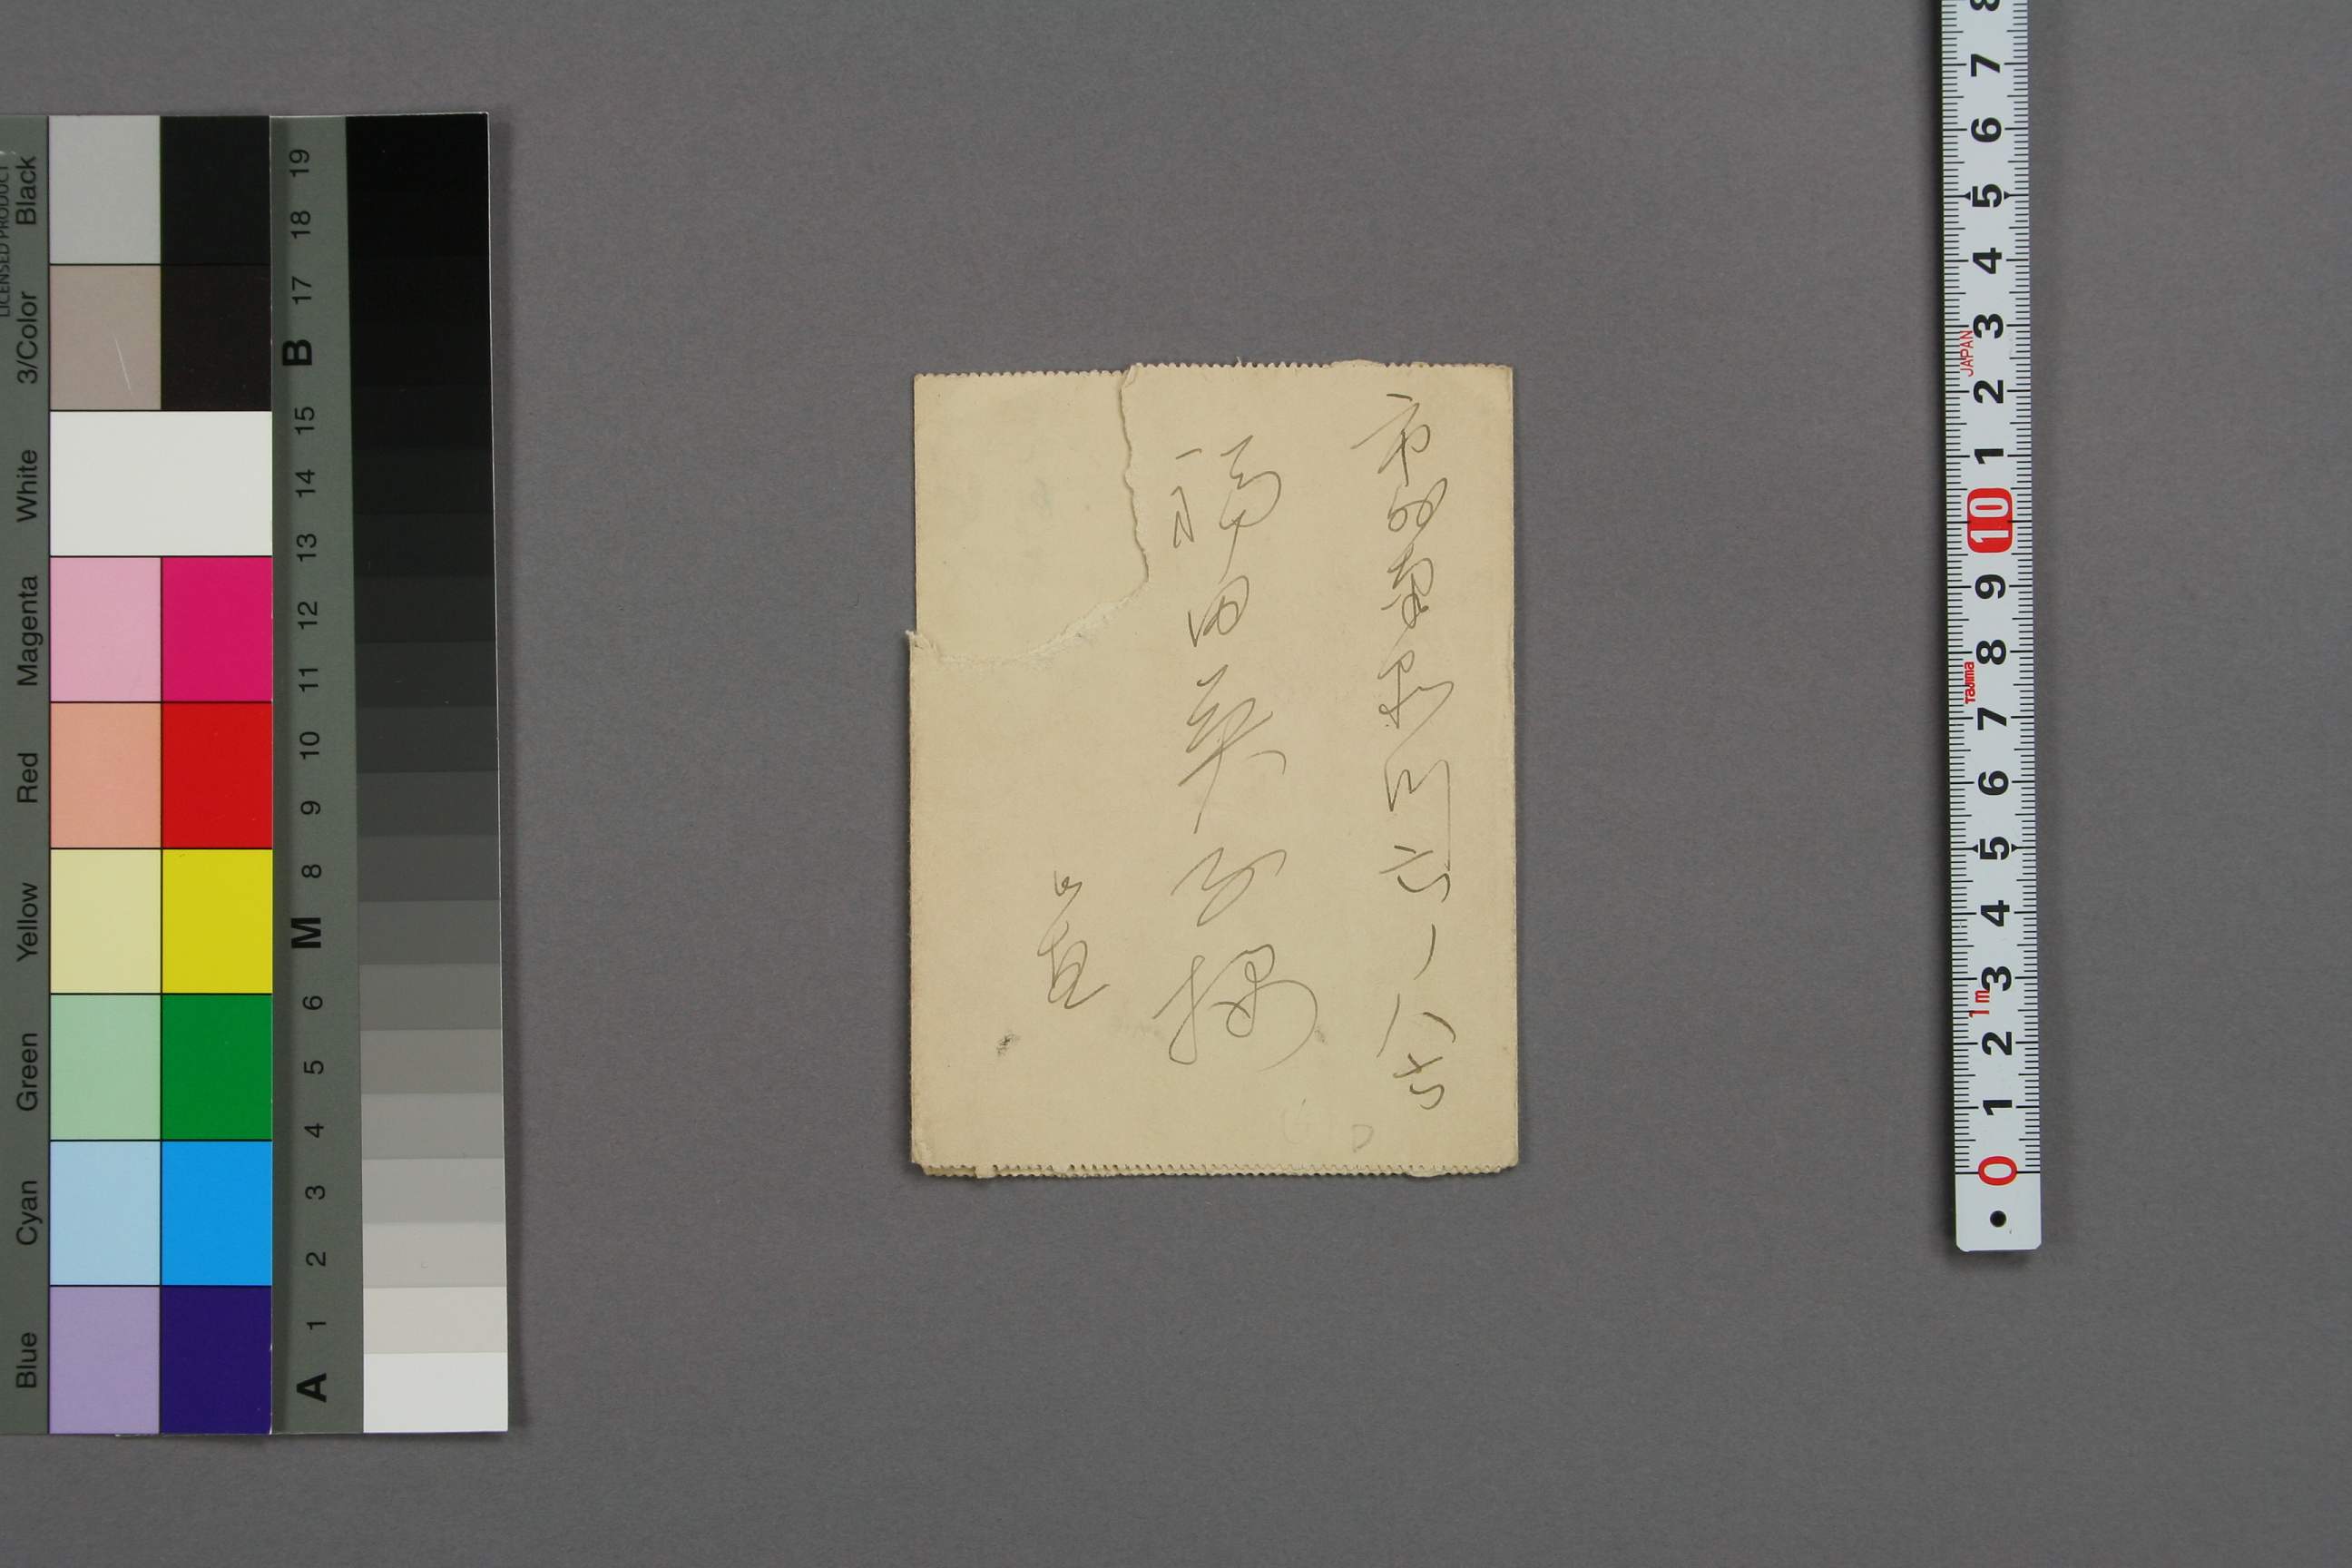 市外南品川六ノ八六
福田英子様
直
LICENSED PRODUCT
Black
3/Color
White
Magenta
Red
Yellow
Green
Cyan
Blue
19
18
17
B
15
14
13
12
11
10
9
8
M
6
5
4
3
2
1
A
8
7
6
5
4
3
JAPAN
2
1
10
9
8
Tajima
7
6
5
4
3
1m
2
1
0